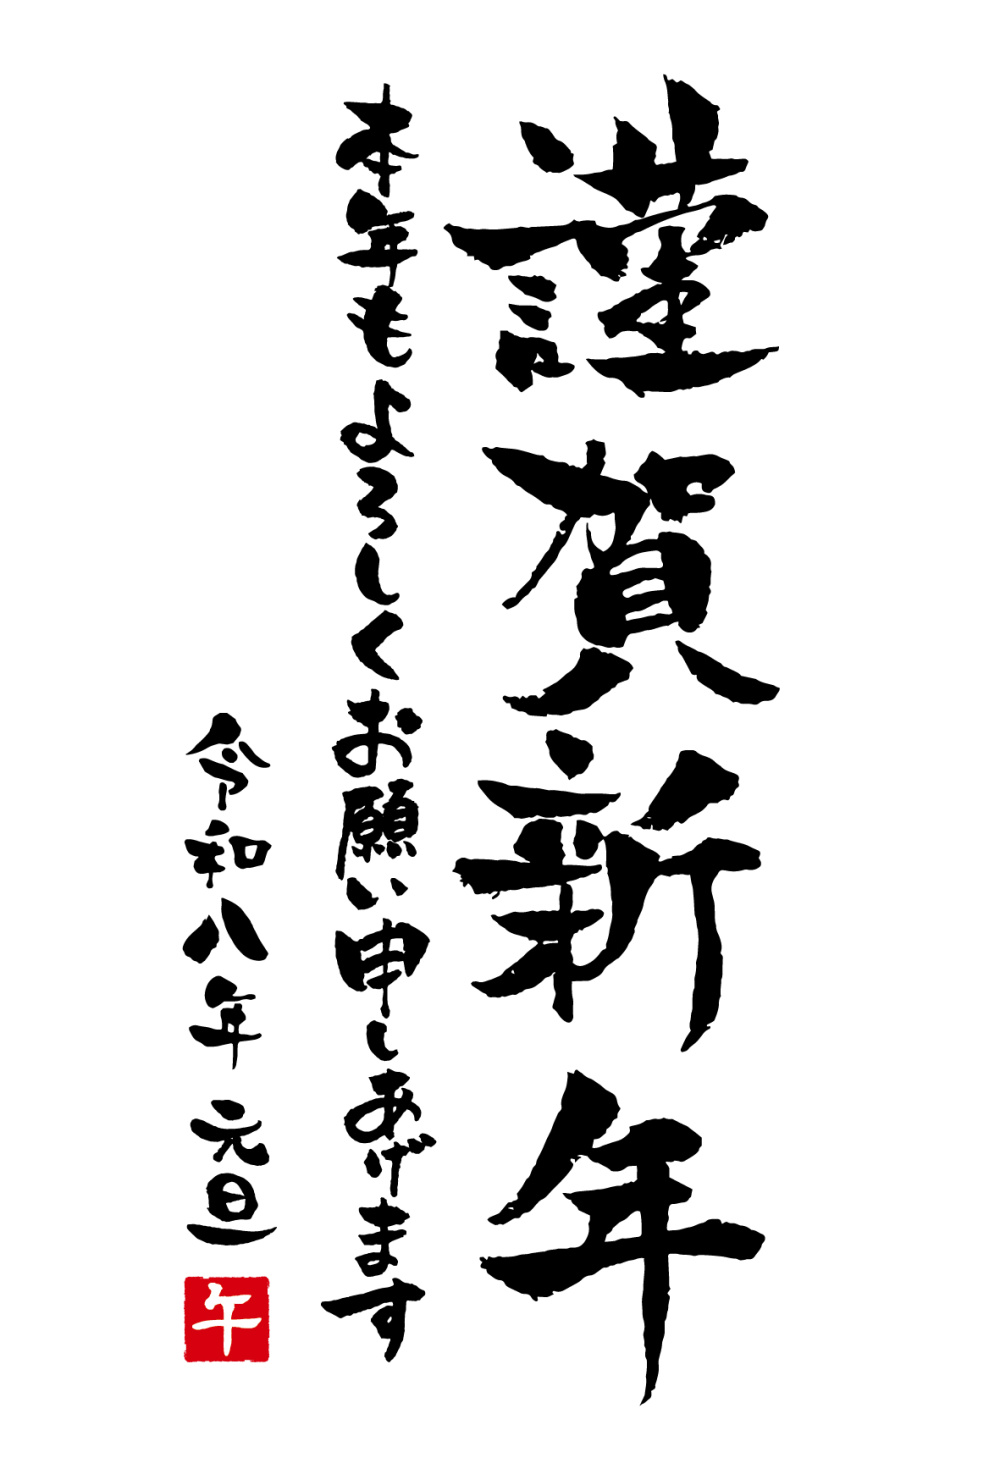 謹賀新年
本年もよろしくお願い申しあげます
令和八年 元旦
午